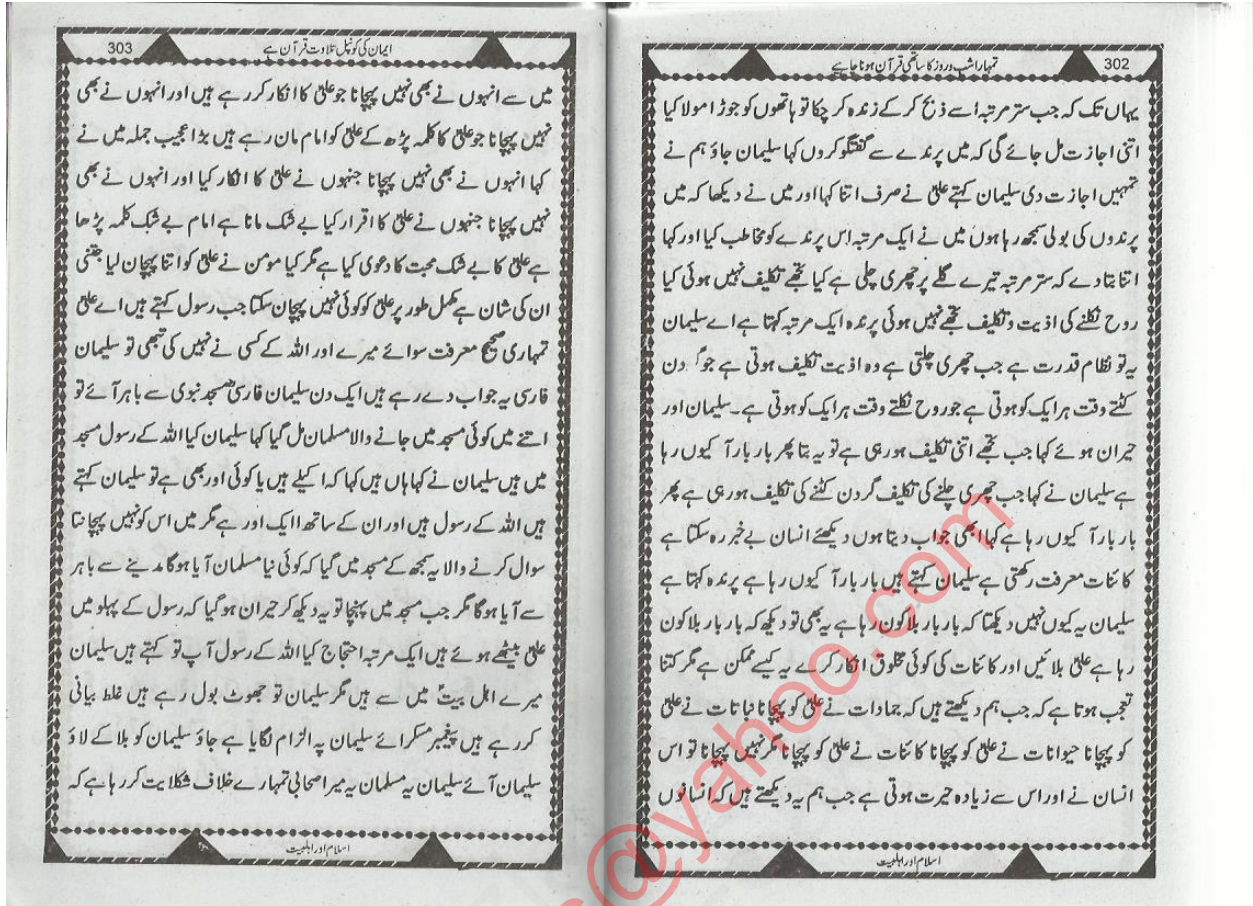 302
تمہارا شب و روز کا ساتھی قرآن ہونا چاہیے
یہاں تک کہ جب ستر مرتبہ اسے ذبح کر کے زندہ کر چکا تو ہاتھوں کو جوڑا مولا کیا
اتنی اجازت مل جائے گی کہ میں پرندے سے گفتگو کروں کہا سلیمان جاؤ ہم نے
تمہیں اجازت دی سلیمان کہتے علیؑ نے صرف اتنا کہا اور میں نے دیکھا کہ میں
پرندوں کی بولی سمجھ رہا ہوں میں نے ایک مرتبہ اس پرندے کو مخاطب کیا اور کہا
اتنا بتا دے کہ ستر مرتبہ تیرے گلے پر چھری چلی ہے کیا تجھے تکلیف نہیں ہوئی کیا
روح نکلنے کی اذیت و تکلیف تجھے نہیں ہوئی پرندہ ایک مرتبہ کہتا ہے اے سلیمان
یہ تو نظام قدرت ہے جب چھری چلتی ہے وہ اذیت تکلیف ہوتی ہے جو دن
کٹتے وقت ہر ایک کو ہوتی ہے جو روح نکلتے وقت ہر ایک کو ہوتی ہے۔ سلیمان اور
حیران ہوئے کہا جب تجھے اتنی تکلیف ہو رہی ہے تو یہ بتا پھر بار بار آ کیوں رہا
ہے سلیمان نے کہا جب چھری چلنے کی تکلیف گردن کٹنے کی تکلیف ہو رہی ہے پھر
بار بار آ کیوں رہا ہے کہا ابھی جواب دیتا ہوں دیکھئے انسان بے خبر رہ سکتا ہے
کائنات معرفت رکھتی ہے سلیمان کہتے ہیں بار بار آ کیوں رہا ہے پرندہ کہتا ہے
سلیمان یہ کیوں نہیں دیکھتا کہ بار بار بلا کون رہا ہے یہ بھی تو دیکھ کہ بار بار بلا کون
رہا ہے علیؑ بلائیں اور کائنات کی کوئی مخلوق انکار کرے یہ کیسے ممکن ہے مگر کتنا
تعجب ہوتا ہے کہ جب ہم دیکھتے ہیں کہ جمادات نے علیؑ کو پہچانا نباتات نے علیؑ
کو پہچانا حیوانات نے علیؑ کو پہچانا کائنات نے علیؑ کو پہچانا مگر نہیں پہچانا تو اس
انسان نے اور اس سے زیادہ حیرت ہوتی ہے جب ہم یہ دیکھتے ہیں کہ انسانوں
اسلام اور اہلبیت
303
ایمان کی کونپل تلاوت قرآن ہے
میں سے انہوں نے بھی نہیں پہچانا جو علیؑ کا انکار کر رہے ہیں اور انہوں نے بھی
نہیں پہچانا جو علیؑ کا کلمہ پڑھ کے علیؑ کو امام مان رہے ہیں بڑا عجیب جملہ میں نے
کہا انہوں نے بھی نہیں پہچانا جنہوں نے علیؑ کا انکار کیا اور انہوں نے بھی
نہیں پہچانا جنہوں نے علیؑ کا اقرار کیا بے شک مانا ہے امام بے شک کلمہ پڑھا
ہے علیؑ کا بے شک محبت کا دعویٰ کیا ہے مگر کیا مومن نے علیؑ کو اتنا پہچان لیا جتنی
ان کی شان ہے مکمل طور پر علیؑ کو کوئی نہیں پہچان سکتا جب رسول کہتے ہیں اے علیؑ
تمہاری صحیح معرفت سوائے میرے اور اللہ کے کسی نے نہیں کی تبھی تو سلیمان
فارسی یہ جواب دے رہے ہیں ایک دن سلیمان فارسیؓ مسجد نبوی سے باہر آئے تو
اتنے میں کوئی مسجد میں جانے والا مسلمان مل گیا کہا سلیمان کیا اللہ کے رسول مسجد
میں ہیں سلیمان نے کہا ہاں ہیں کہا کہ اکیلے ہیں یا کوئی اور بھی ہے تو سلیمان کہتے
ہیں اللہ کے رسول ہیں اور ان کے ساتھ اایک اور ہے مگر میں اس کو نہیں پہچانتا
سوال کرنے والا یہ سمجھ کے مسجد میں گیا کہ کوئی نیا مسلمان آیا ہوگا مدینے سے باہر
سے آیا ہوگا مگر جب مسجد میں پہنچا تو یہ دیکھ کر حیران ہو گیا کہ رسول کے پہلو میں
علیؑ بیٹھے ہوئے ہیں ایک مرتبہ احتجاج کیا اللہ کے رسول آپ تو کہتے ہیں سلیمان
میرے اہل بیتؑ میں سے ہیں مگر سلیمان تو جھوٹ بول رہے ہیں غلط بیانی
کر رہے ہیں پیغمبر مسکرائے سلیمان پہ الزام لگایا ہے جاؤ سلیمان کو بلا کے لاؤ
سلیمان آئے سلیمان یہ مسلمان یہ میرا صحابی تمہارے خلاف شکایت کر رہا ہے کہ
اسلام اور اہلبیت
s@yahoo.com